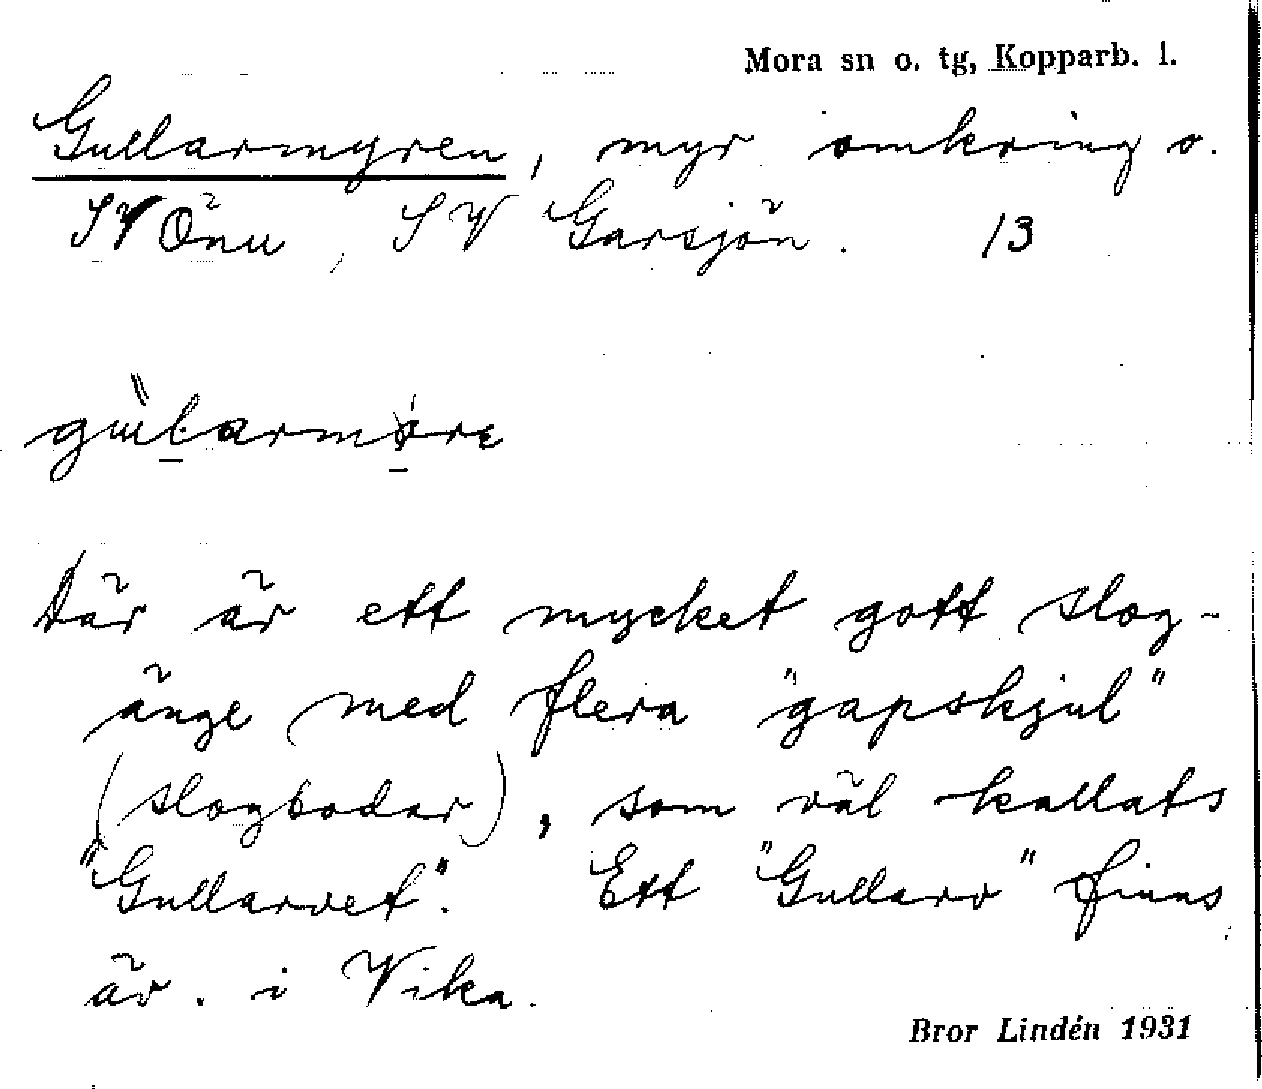 Mora sn o. tg, Kopparb. l.
Gullarmyren, myr omkring o.
SV Önu, SV Garsjön. 13
Där är ett mycket gott slog-
änge med flera "gapskjul"
(slogbodar), som väl kallats
"Gullarvet". Ett "Gullarv" finns
äv. i Vika.
Bror Lindén 1931